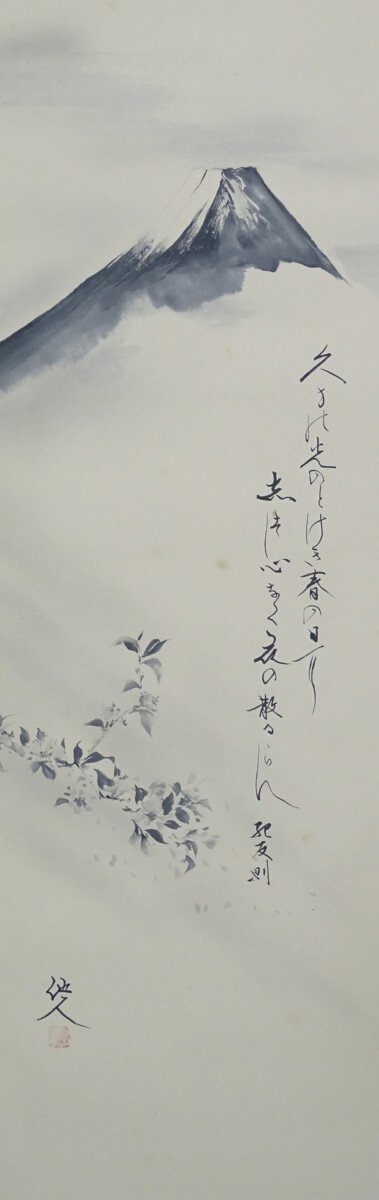 久方能光のとけき春の日耳
志徒心なく花の散るらん
紀友則